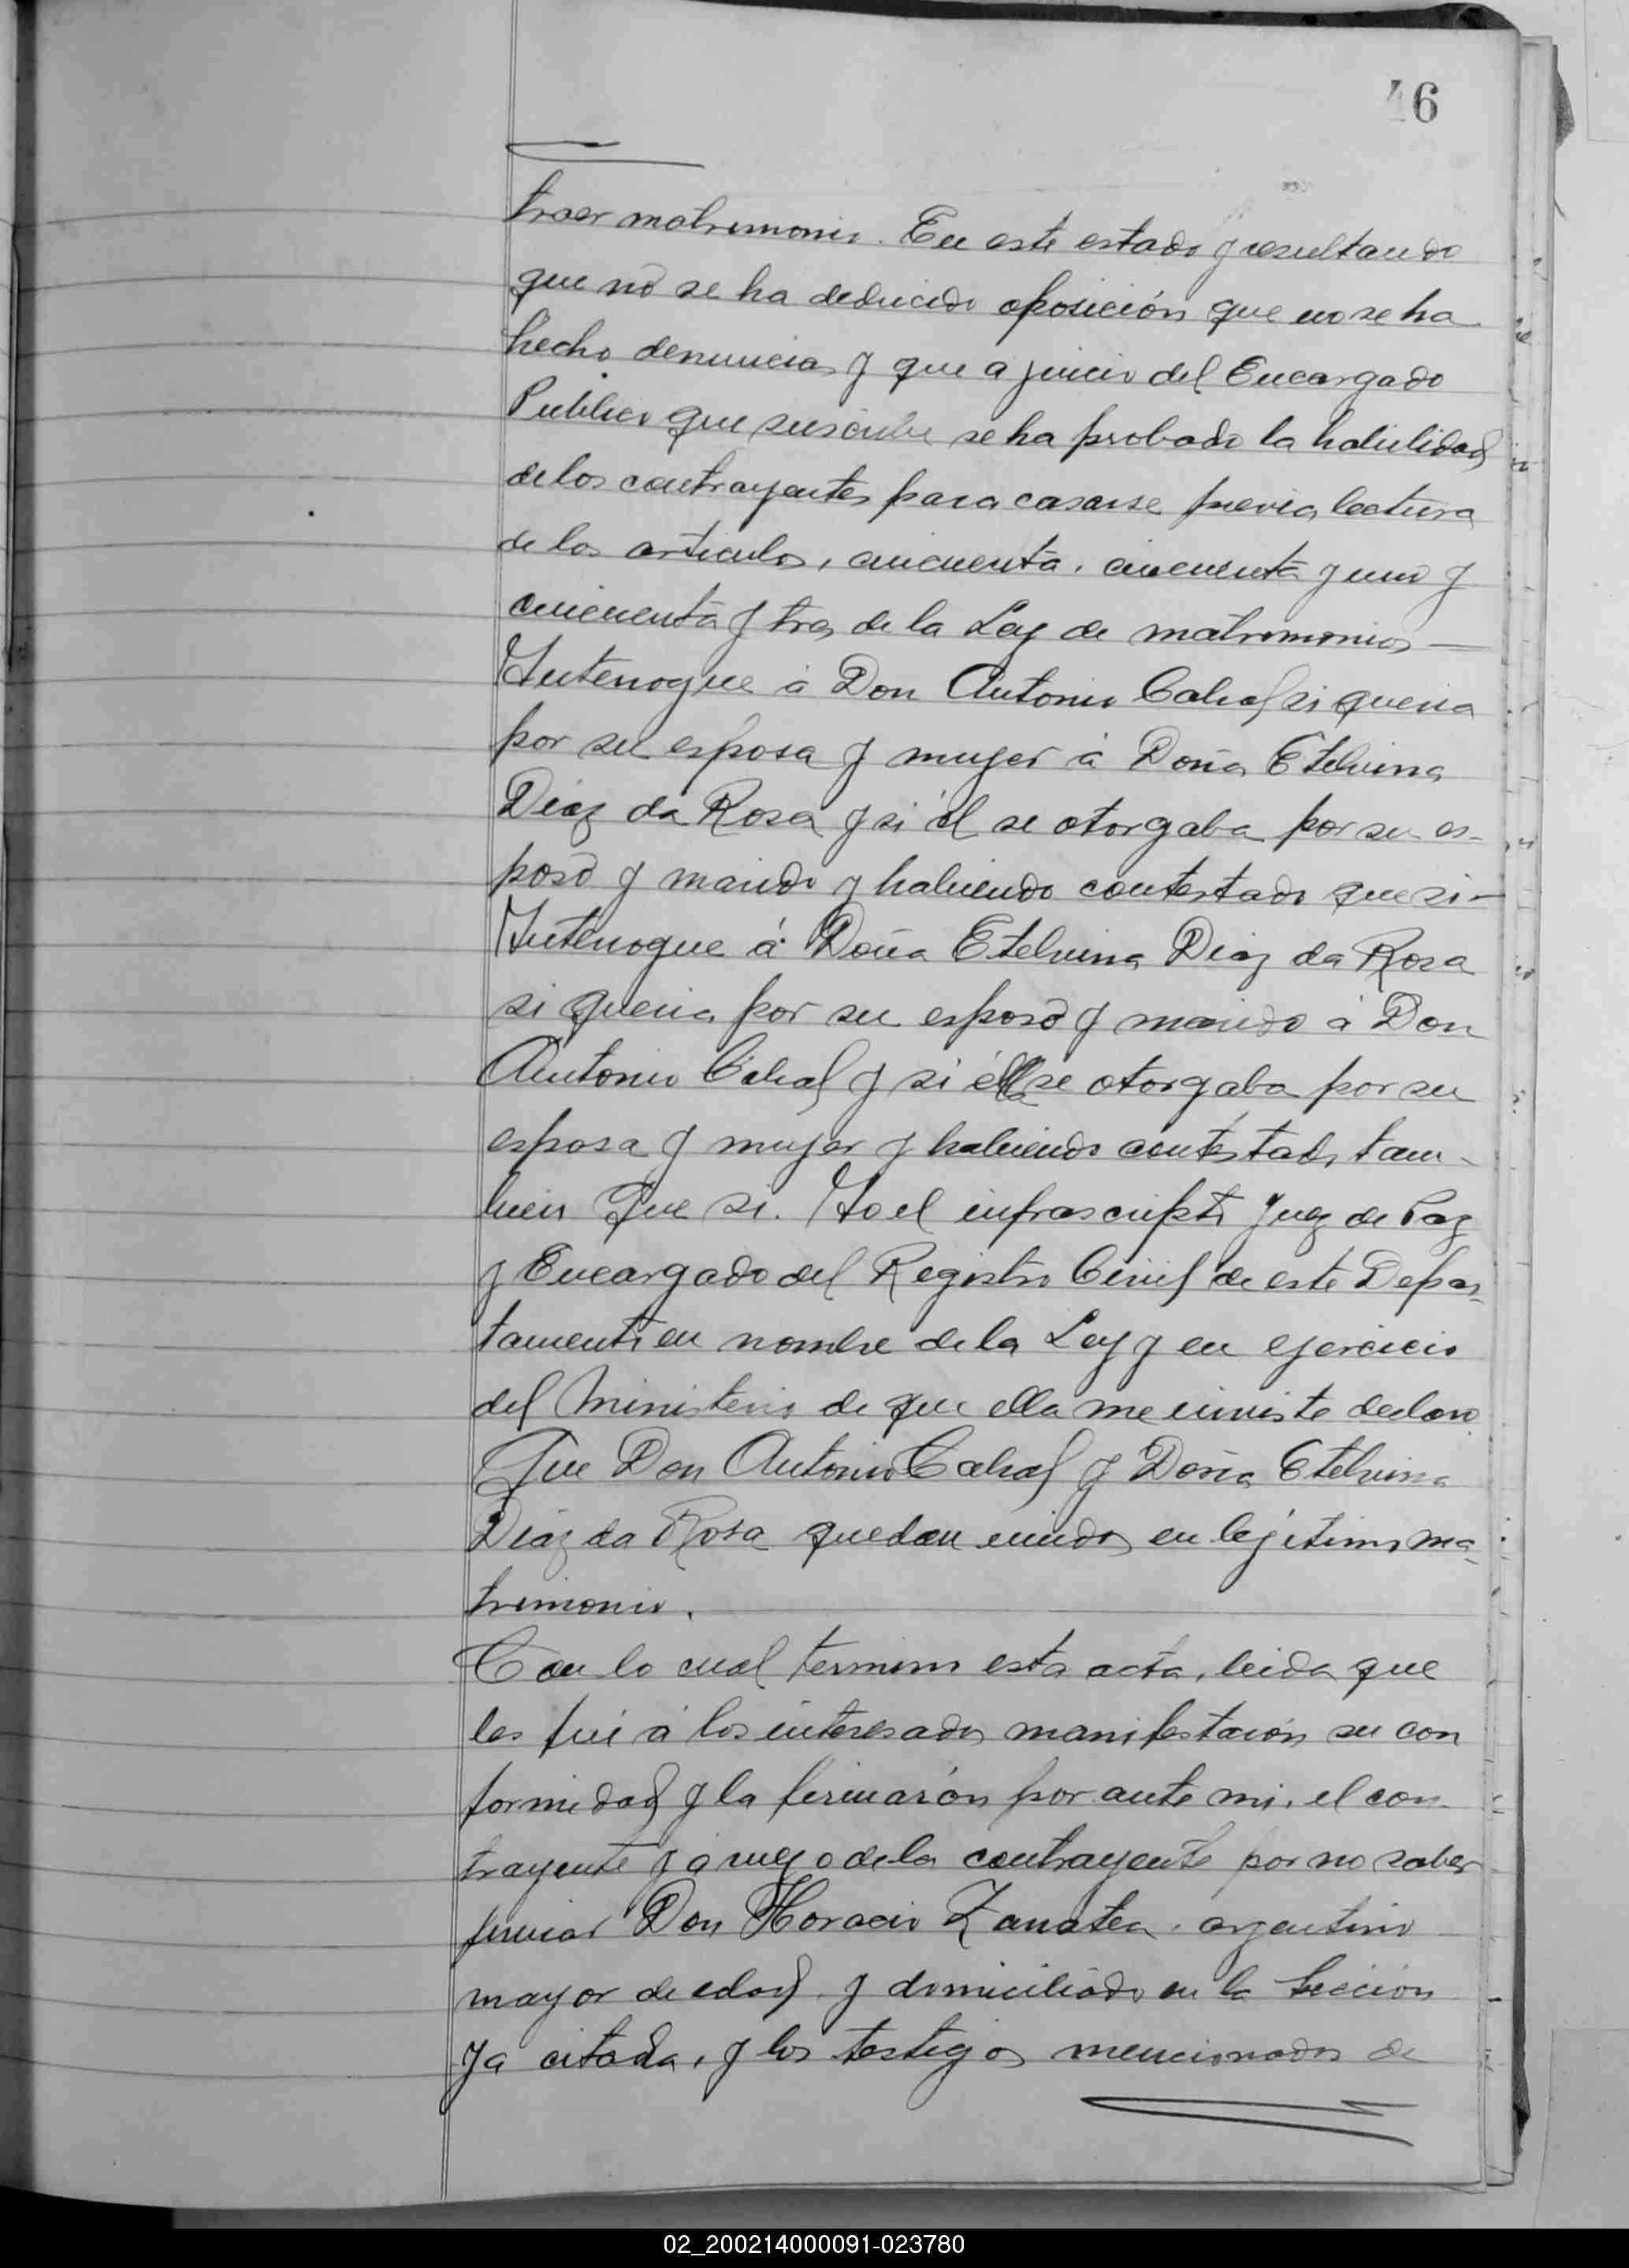 46
traer matrimonio. En este estado y resultando
que no se ha deducido oposición que no se ha
hecho denuncia y que a juicio del Encargado
Publico que suscribe se ha probado la habilidad
de los contrayentes para casarse previa lectura
de los articulos, cincuenta, cincuenta y uno y
cincuenta y tres de la Ley de matrimonios —
Interrogue á Don Antonio Cabral si queria
por su esposa y muger á Doña Etelvina
Diaz da Rosa y si él se otorgaba por su es-
poso y marido y habiendo contestado que si —
Interrogue á Doña Etelvina Diaz da Rosa
si queria por su esposo y marido á Don
Antonio Cabral y si élla se otorgaba por su
esposa y muger y habiendo contestado tam-
bien Que si. Yo el infrascripto Juez de Paz
y Encargado del Registro Civil de este Depar-
tamento en nombre de la Ley y en ejercicio
del Ministerio de que ella me inviste declaro
Que Don Antonio Cabral y Doña Etelvina
Diaz da Rosa quedan unidos en lejitimo ma-
trimonio.
Con lo cual termino esta acta, leida que
les fué á los interesados manifestarón su con
formidad y la firmarón por ante mi, el con-
trayente y a ruego de la contrayente por no saber
firmar Don Horacio Zanatea, argentino
mayor de edad, y domiciliado en la Sección
ya citada, y los testigos mencionados de
02_200214000091-023780